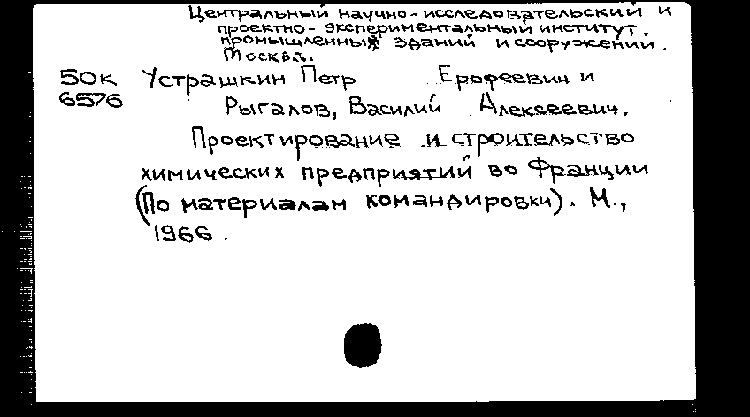 Центральный научно-исследовательский и
проектно-экспериментальный институт
промышленных зданий и сооружений.
Москва.
50к Устрашкин Петр Ерофеевич и
6576 Рыгалов, Василий Алексеевич.
Проектирование и строительство
химических предприятий во Франции
(По материалам командировки). М.,
1966.